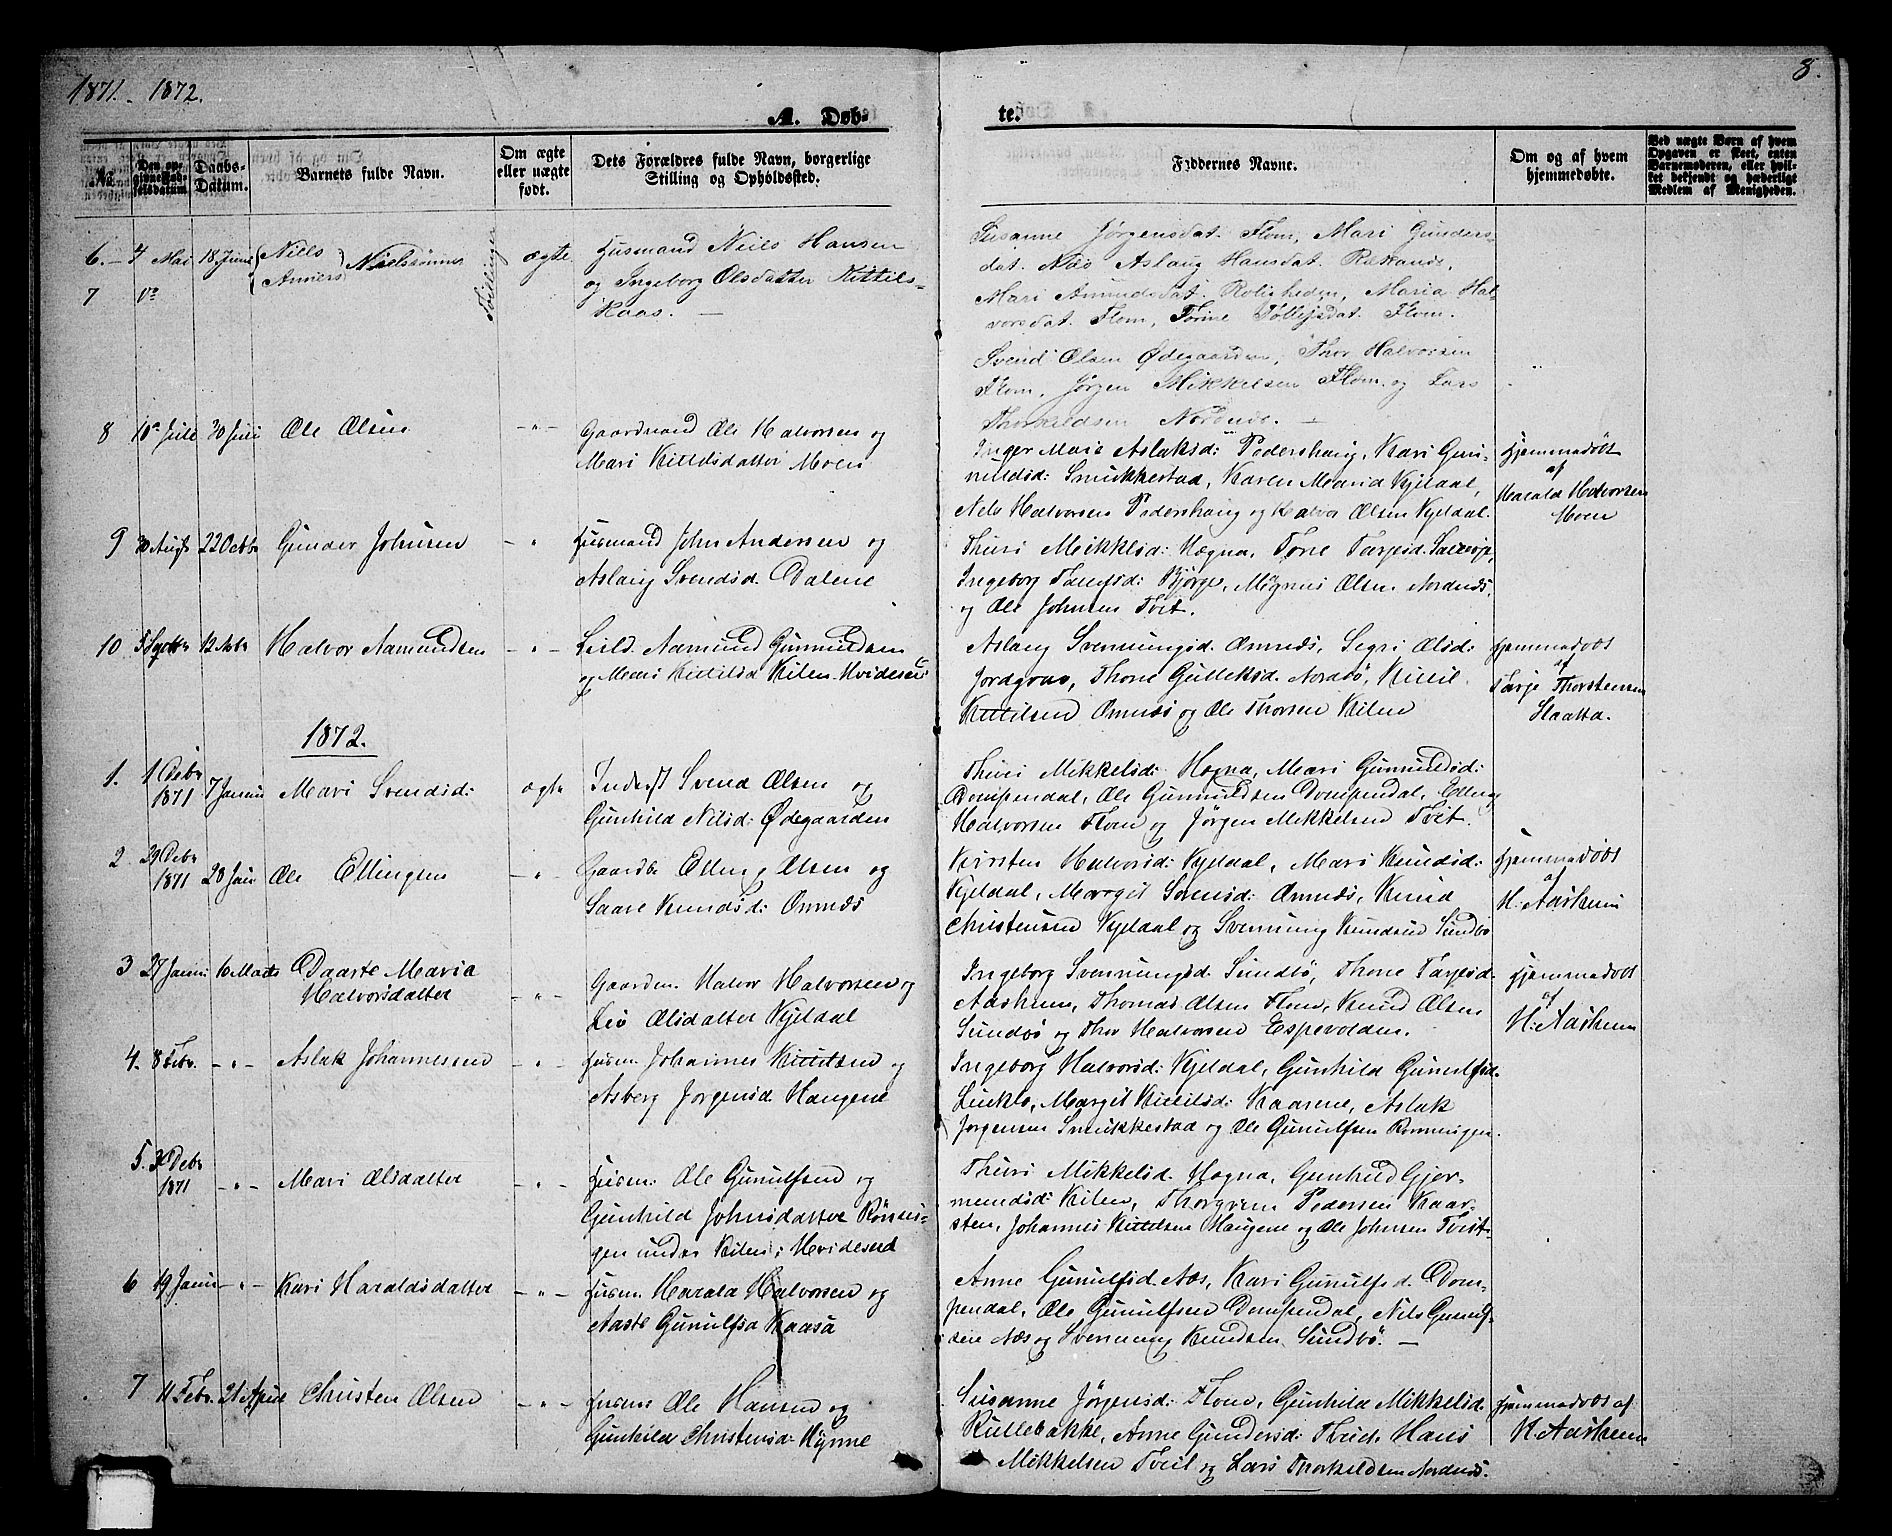 1871. 1872.
8.
A. Døb-
te.
No.
Daabs-
Datum.
Barnets fulde Navn.
Om ægte
eller uægte
født.
Dets Forældres fulde Navn, borgerlige
Stilling og Opholdssted.
Faddernes Navne.
Om og af hvem
hjemmedøbte.
Ved uægte Børn af hvem
Opgaven er skeet, enten
Barnemoderen, eller hvil-
ket bekjendt og hæderligt
Medlem af Menigheden.
6. 7 Mai 18 Juni Niels
Anners Nielssønner
Tvillinger
ægte
Husmand Niels Hansen
og Ingeborg Olsdatter Kittels-
Kaas. —
Susanne Jørgensdat. Flom, Mari Gunders-
dat. Næs Aslaug Hansdat.
Mari Amundsdat. Roligheden, Maria Hal-
vorsdat. Flom, Torine Tollefsdat. Flom.
Svend Olsen Ødegaarden, Thor Halvorsen
Flom, Jørgen Mikkelsen Flom og Lars
Thorkildsen Nordnæs. —
7
8 10de Juli 30 Juli Ole Olsen
Gaardmand Ole Halvorsen og
Mari Kittilsdatter Moen
Inger Marie Aslaksd: Pedershaug, Kari Gun-
nuldsd: Smukkestad, Karen Maria Kjeldal,
Nels Halvorsen Pedershaug og Halvor Olsen Kjeldal.
Hjemmedøbt
af
Harald Halvorsen
Moen
9 30 Augst 22 Octbr Gunder Johnsen
Husmand John Andersen og
Aslaug Svendsd. Dalene
Thuri Mikkelsd: Høgna, Tone Tarjesd.
Ingeborg Bjørge, Magnus Olsen Nordnæs,
og Ole Johnsen Tveit.
10 5 Septbr 12 Halvor Aamundsen
Leil. Aamund Gunnuldsen
og Mari Kittilsd Kilen Hvideseid
Aslaug Svenningsd. Omnæs, Segri Olsd:
Thone Gulleksd. Nordbø, Kittil
Kittilsen Omnæs og Ole Thorsen Kilen
Hjemmedøbt
af
Tarje Thorstensen
Slaatta.
1872.
1. 1 Decbr
1871 7 Januar Mari Svendsd:
ægte
Inderst Svend Olsen og
Gunhild Nilsd: Ødegaarden
Thuri Mikkelsd: Høgna, Mari Gunnuldsd:
Dompendal, Ole Gunnuldsen Dompendal, Elling
Halvorsen Flom og Jørgen Mikkelsen Tveit.
2 29 Decbr
1871 28 Jan Ole Ellingsen
Gaardbr Elling Olsen og
Saave Knudsd: Omnæs
Kirsten Halvorsd: Kjeldal, Mari Knudsd:
Kjeldal, Margit Omnæs, Knud
Christensen Kjeldal og Svenning Knudsen Sundbø
Hjemmedøbt
af
H. Aasheim
3 27 Januar 16 Marts Daarte Maria
Halvorsdatter
Gaardm. Halvor Halvorsen og
Liv Olsdatter Kjeldal
Ingeborg Svenningsd. Sundbø, Thone Tarjesd.
Aasheim, Thomas Olsen Flom, Knud Olsen
Sundbø og Thor Halvorsen Espevolden.
Hjemmedøbt
af
H. Aasheim
4. 8 Febr. Aslak Johannessen
Husm. Johannes Kittilsen og
Asberg Jørgensd Haugene
Ingeborg Halvorsd: Kjeldal, Gunhild Gunulfsd.
Margit Kittilsd: Kaasene, Aslak
Jørgensen Smukkestad og Ole Gunulfsen Rønningen.
5. Decbr
1871 Mari Olsdatter
Husm: Ole Gunulfsen og
Gunhild Johnsdatter Rønnin-
gen under Kilen i Hvideseid
Thuri Mikkelsd. Høgna, Gunhild Gjer-
mundsd: Kilen, Thorgrim Pedersen Kaar-
sten, Johannes Kittilsen Haugene og Ole Johnsen Tveit.
6 19 Januar Kari Haraldsdatter
Husm. Harald Halvorsen og
Aaste Gunulfsd Kaasa
Anne Gunulfsd. Næs, Kari Gunulfsd. Dom-
pendal, Ole Gunulfsen Dompendal, Nils Gunulf-
sen Næs og Svenning Knudsen Sundbø. —
7 11 Febr. 21 April Christen Olsen
Husm: Ole Hansen og
Gunhild Christensd: Kynne
Susanne Jørgensd: Flom, Gunhild Mikkelsd.
Kullebakke, Anne Gundersd: Tveit, Hans
Mikkelsen Tveit og Lars Thorkildsen Nordnæs.
Hjemmedøbt af
H. Aasheim